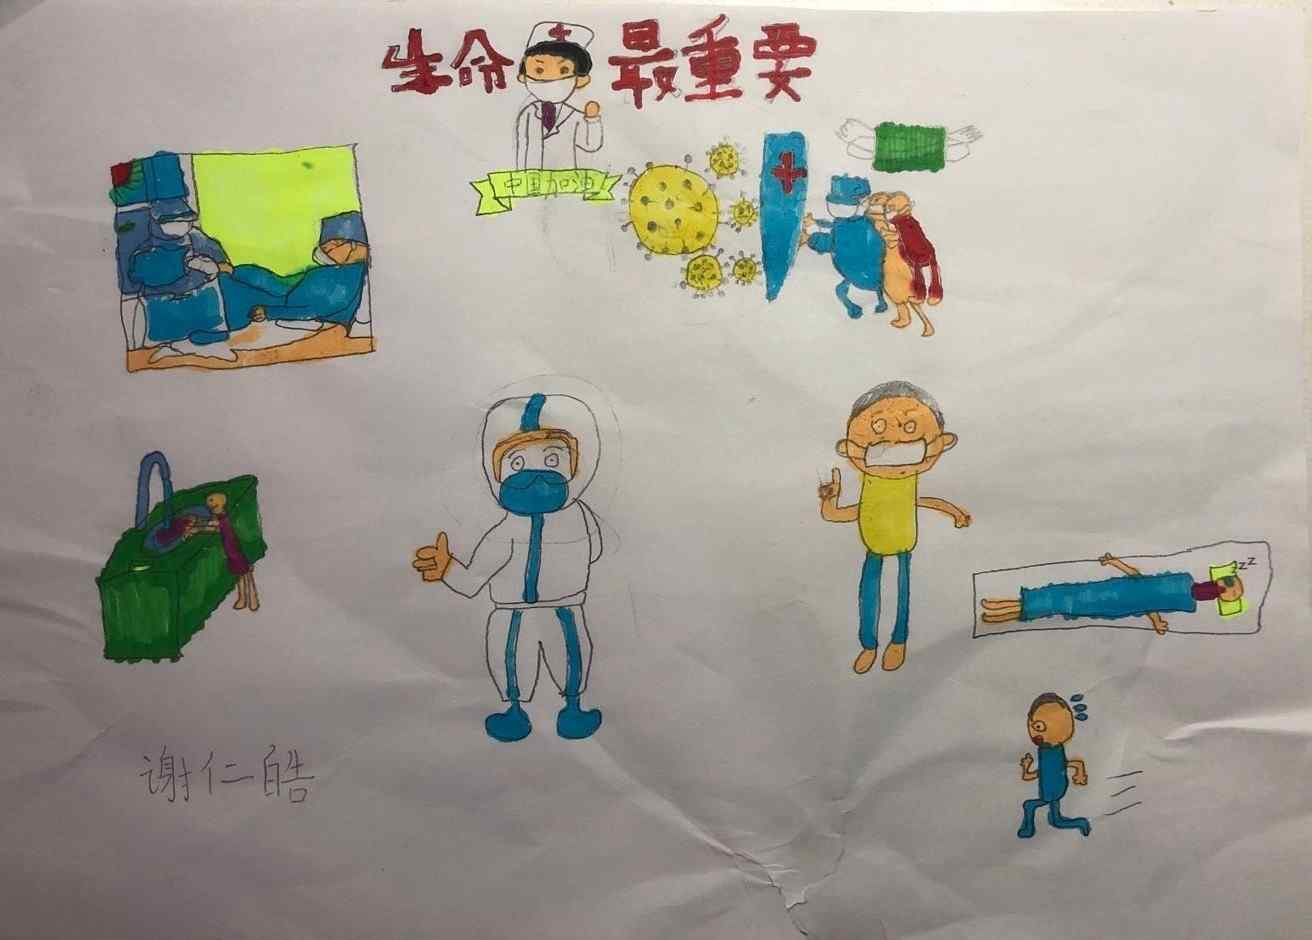 生命最重要
中国加油
zzz
谢仁皓